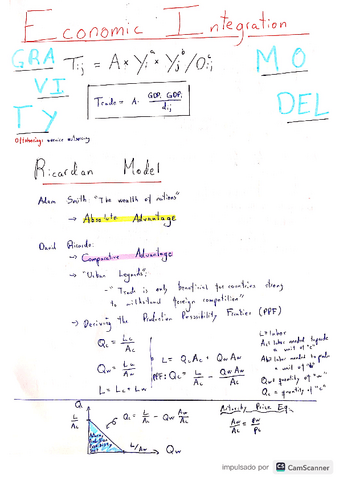 Economic Integration
GRAVITY MODEL
Tij = A × Yi^a × Yj^b / Dij^c
Trade = A · GDPi GDPj / dij
Offshoring: service outsourcing
Ricardian Model
Adam Smith: "The wealth of nations"
→ Absolute Advantage
David Ricardo:
→ Comparative Advantage
→ "Urban Legends":
- "Trade is only beneficial for countries strong
to withstand foreign competition"
→ Deriving the Production Possibility Frontier (PPF)
Qc = Lc / Ac
Qw = Lw / Aw
L = Lc + Lw
L = Qc Ac + Qw Aw
PPF: Qc = L / Ac - Qw Aw / Ac
L = labor
Ac: labor needed to produce
a unit of "c"
Aw: labor needed to produce
a unit of
Qw = quantity of "w"
Qc = quantity of "c"
Qc
L / Ac
Qc = L / Ac - Qw Aw / Ac
L/Aw
Qw
Price Eq.:
Aw / Ac = Pw / Pc
impulsado por CS CamScanner